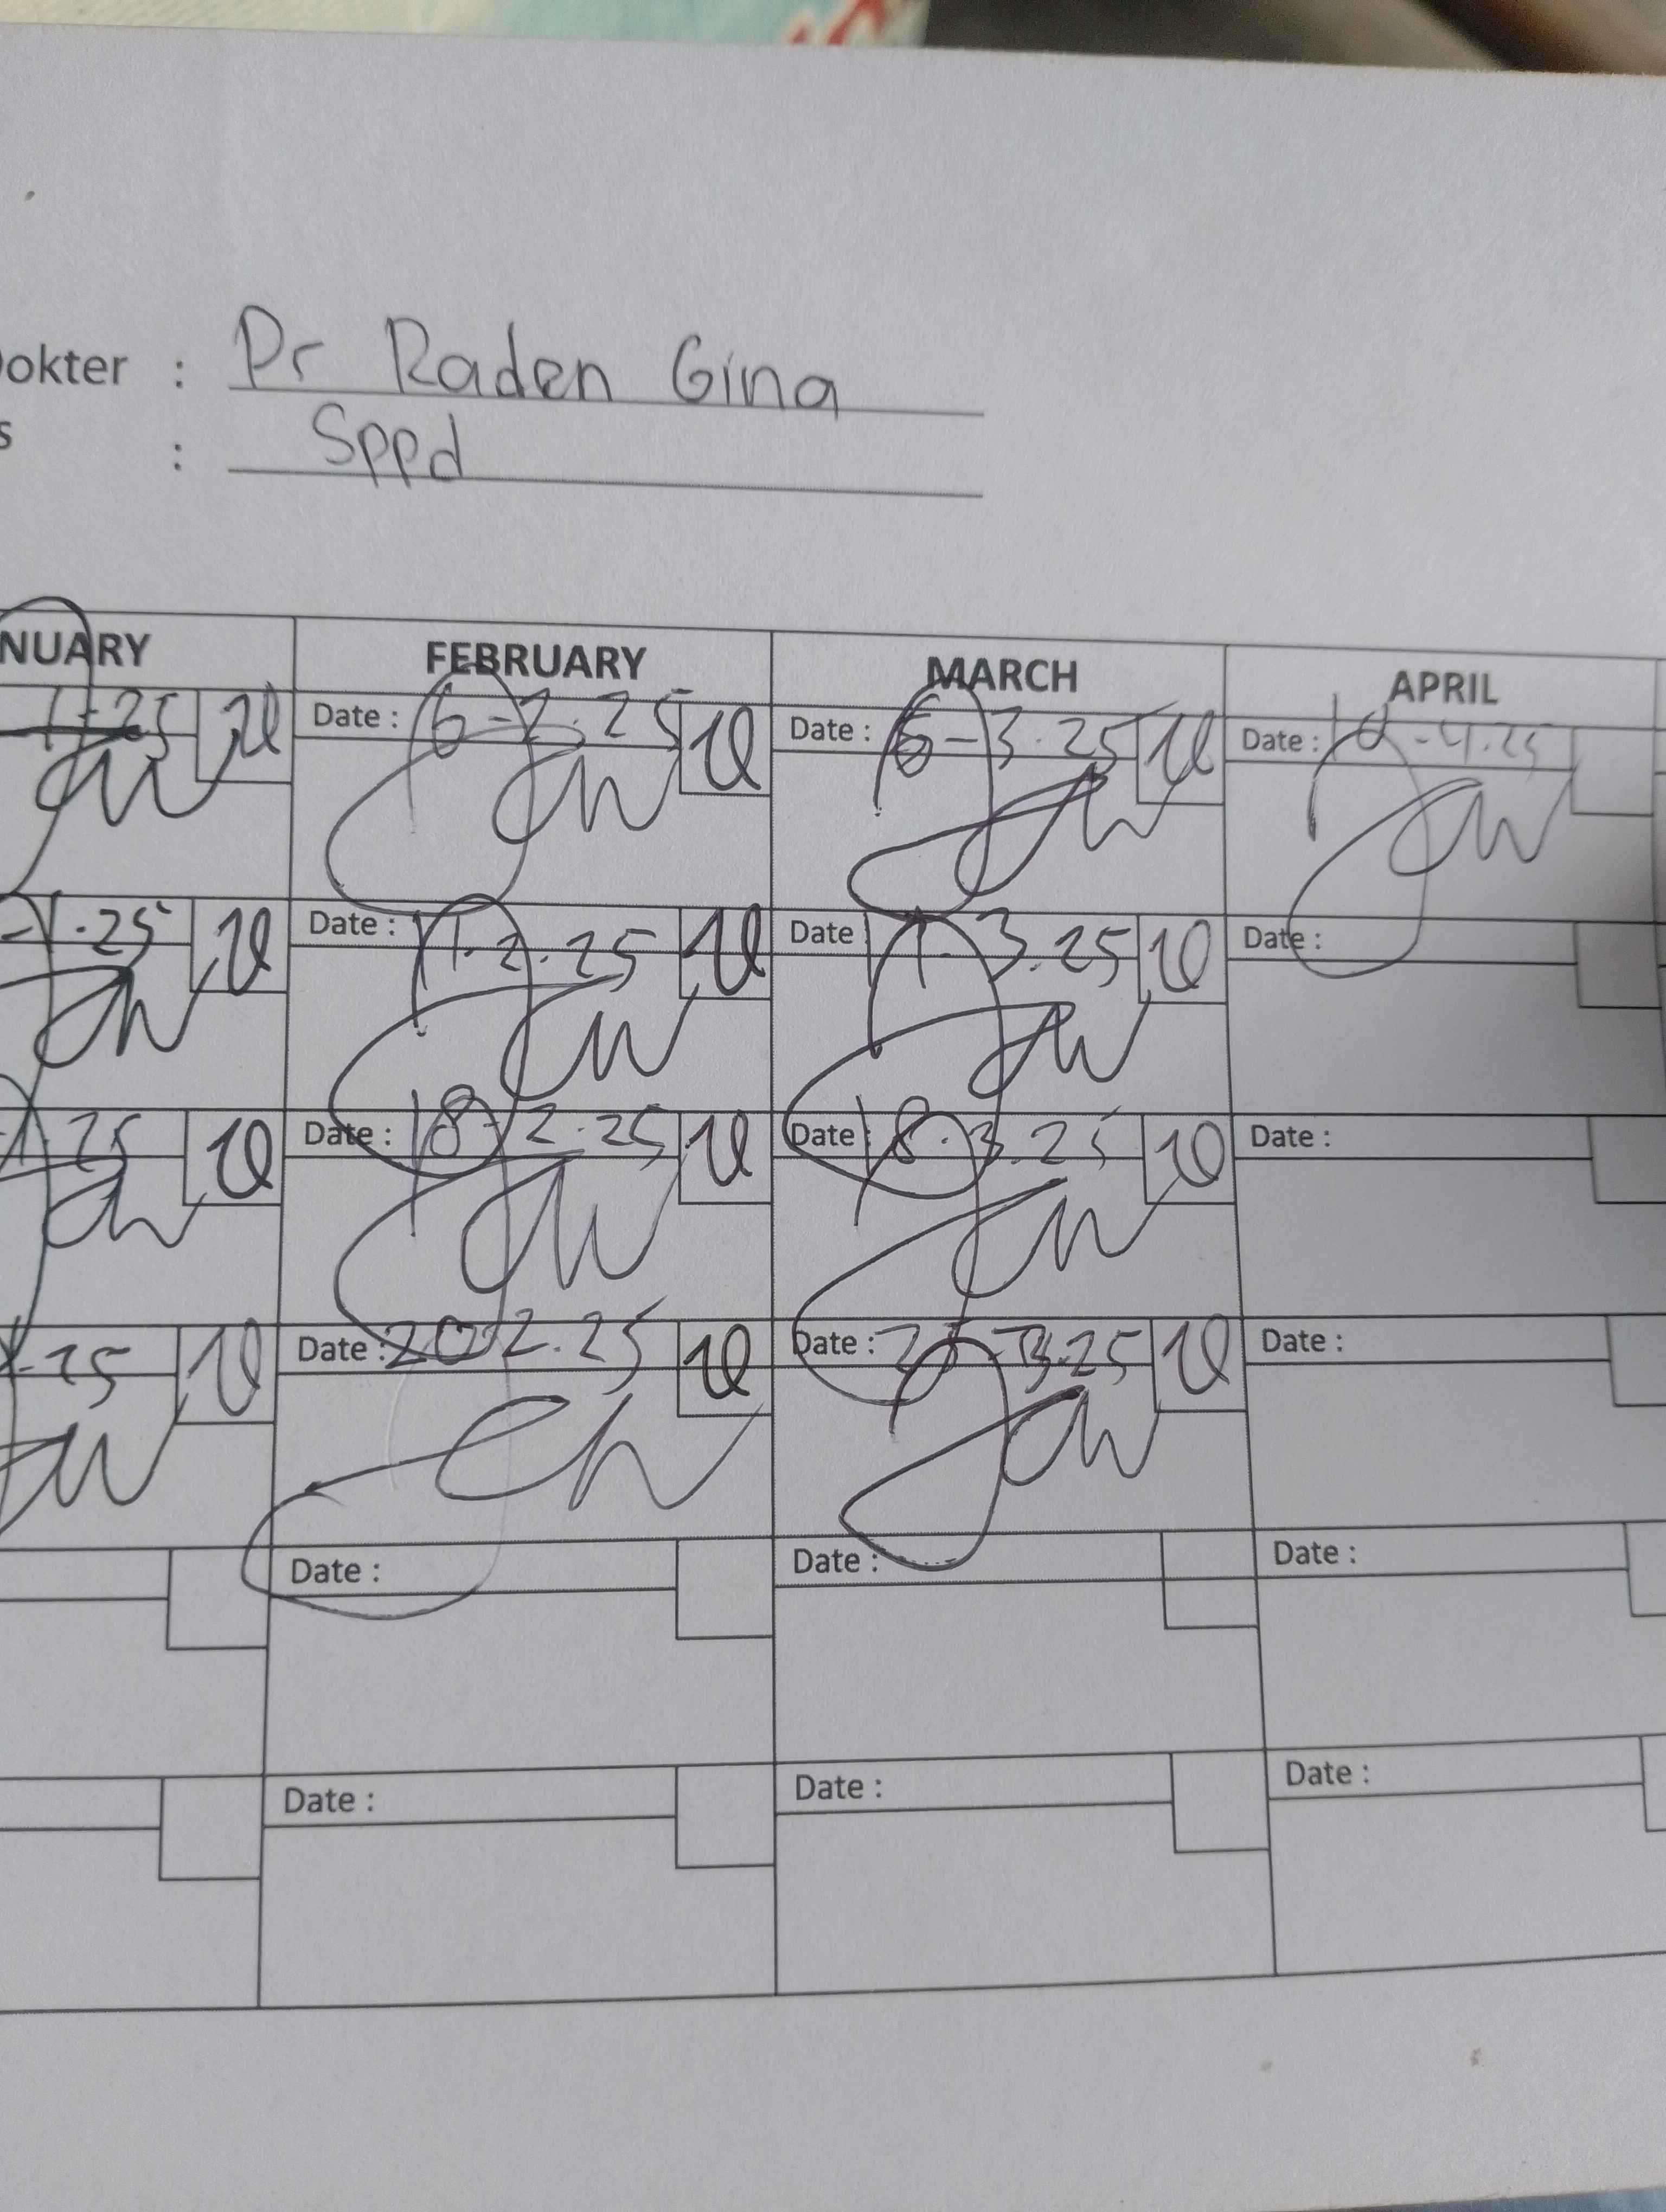 okter : Dr Raden Gina
s : Sppd
NUARY FEBRUARY MARCH APRIL
1-25 Date : 6-2.25 Date : 6-3.25 Date : 10-4.25
-1.25 Date : 11.2.25 Date : 11.3.25 Date :
.25 Date : 18-2.25 Date : 18.3.25 Date :
.25 Date : 20 2.25 Date : 25-3.25 Date :
Date : Date : Date :
Date : Date : Date :